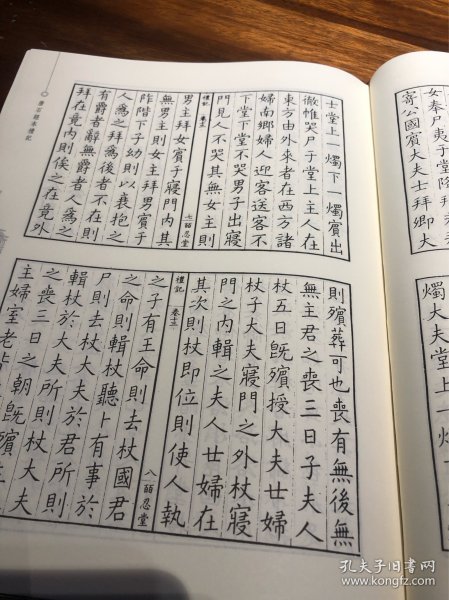 女奉尸夷于堂
寄公國賓大夫士拜卿大
燭大夫堂上一燭
士堂上一燭下一燭賓出
徹帷哭尸于堂上主人在
東方由外來者在西方諸
婦南鄉婦人迎客送客不
下堂下堂不哭男子出寢
門見人不哭其無女主則
禮記 卷十三 七 皕忍堂
男主拜女賓于寢門內其
無男主則女主拜男賓于
阼階下子幼則以衰抱之
人為之拜為後者不在則
有爵者辭無爵者人為之
拜在竟內則俟之在竟外
則殯葬可也喪有無後無
無主君之喪三日子夫人
杖五日旣殯授大夫世婦
杖子大夫寢門之外杖寢
門之內輯之夫人世婦在
其次則杖即位則使人執
禮記 卷十三 八 皕忍堂
之子有王命則去杖國君
之命則輯杖聽卜有事於
尸則去杖大夫於君所則
輯杖於大夫所則杖大夫
之喪三日之朝旣殯
主婦室老皆
唐石經本禮記
孔夫子旧书网
www.kongfz.com